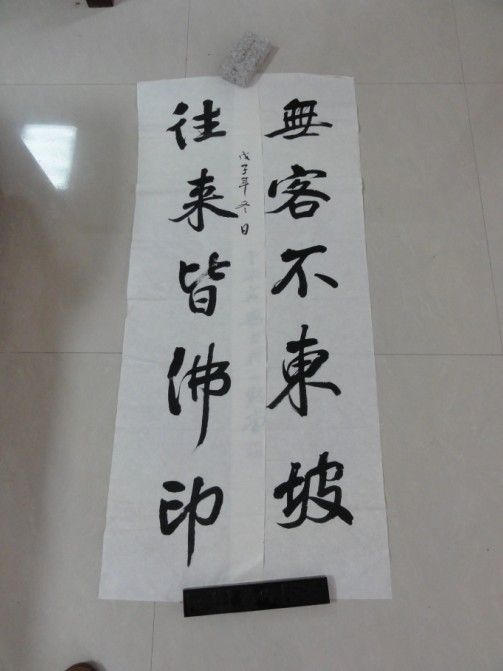 無客不東坡
往来皆佛印
戊子年冬日